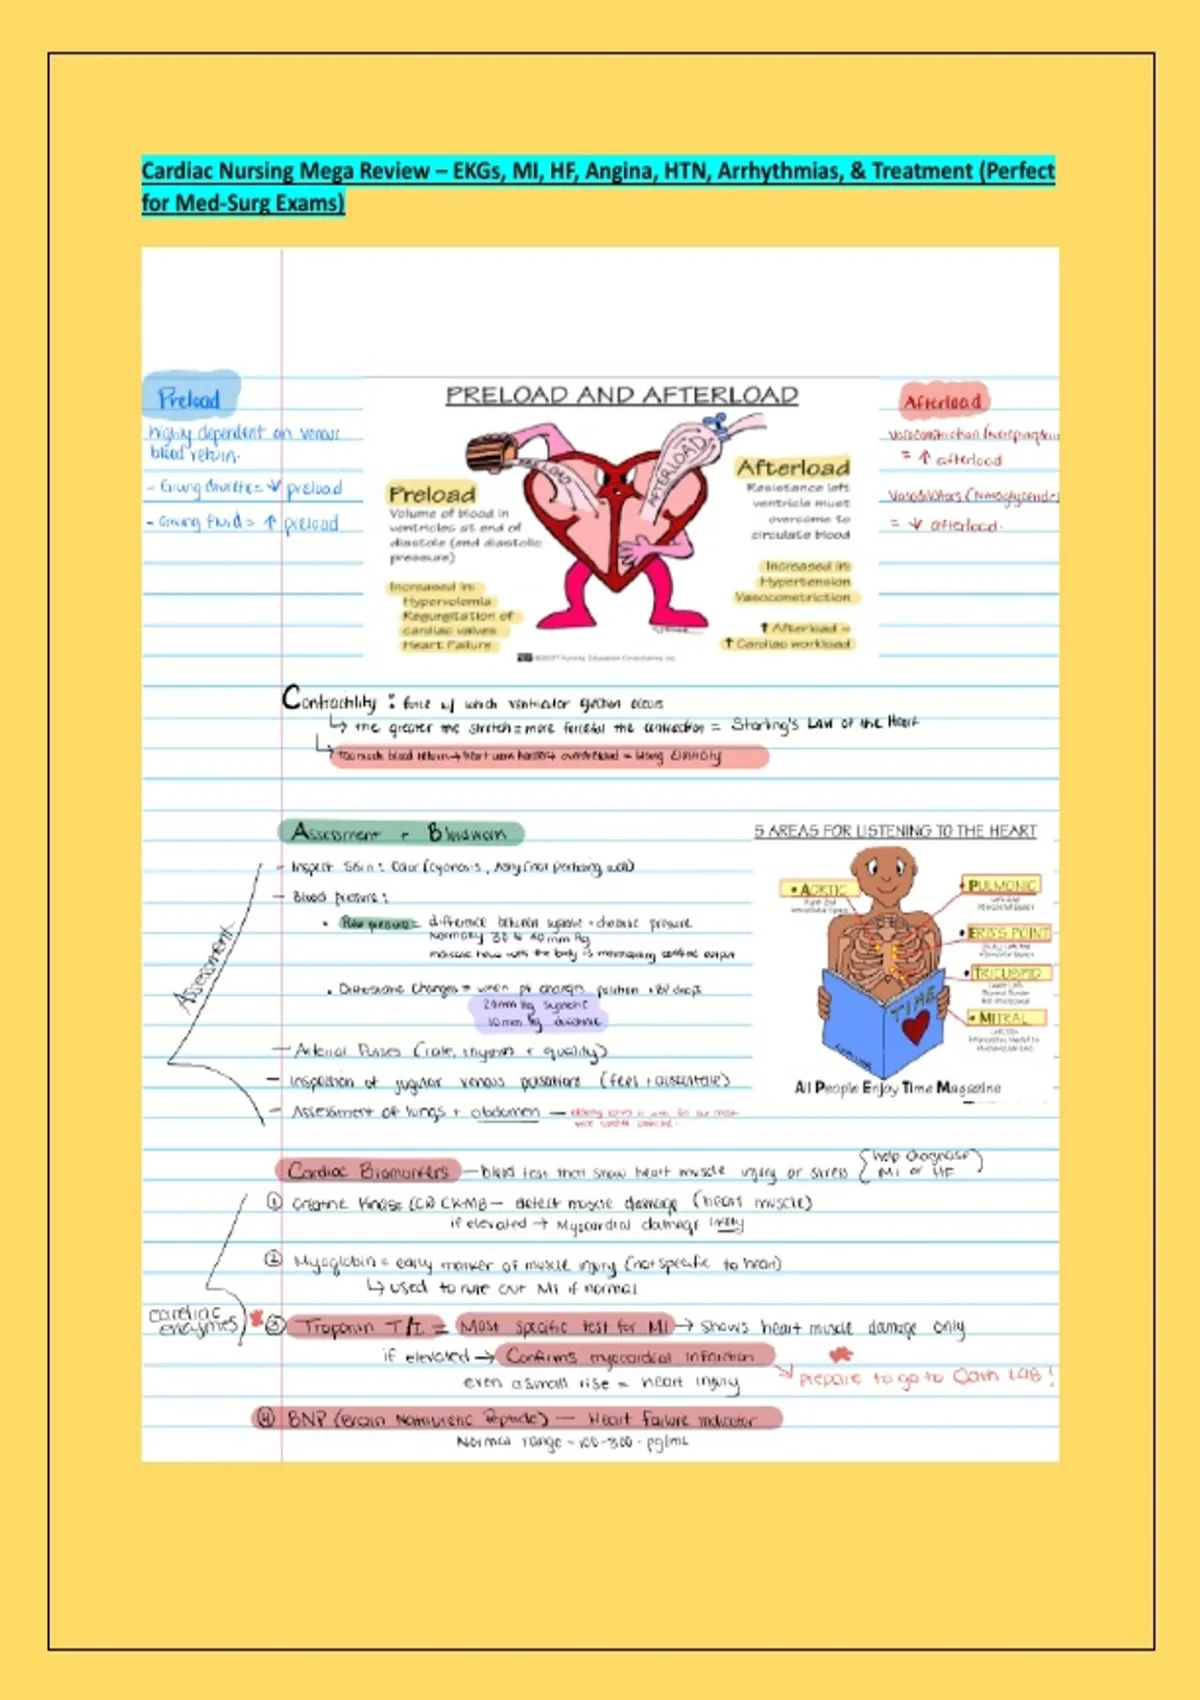 Cardiac Nursing Mega Review – EKGs, MI, HF, Angina, HTN, Arrhythmias, & Treatment (Perfect
for Med-Surg Exams)
Preload
highly dependent on venous
blood return.
- Giving diuretic = ↓ preload
- Giving fluid = ↑ preload
PRELOAD AND AFTERLOAD
PRELOAD
AFTERLOAD
Preload
Volume of blood in
ventricles at end of
diastole (end diastolic
pressure)
Increased in:
Hypervolemia
Regurgitation of
cardiac valves
Heart Failure
Afterload
Resistance left
ventricle must
overcome to
circulate blood
Increased in:
Hypertension
Vasoconstriction
↑ Afterload =
↑ Cardiac workload
Nursing Education Consultants, Inc.
Afterload
vasoconstriction
= ↑ afterload
Vasodilators
= ↓ afterload.
Contractility : force w/ which ventricular ejection occurs
↳ the greater the stretch = more forceful the contraction = Starling's Law of the Heart
↳ too much blood return → heart work harder → overstretched = losing Elasticity
Assessment + Bloodwork
Assessment
- Inspect Skin : Color (cyanosis, Ashy (not perfusing well)
- Blood pressure :
• Pulse pressure = difference between systolic + diastolic pressure
Normally 30 to 40 mm Hg
indicate how well the body is maintaining cardiac output
• Orthostatic Changes = when pt changes position + BP drops
20mm Hg systolic
10mm Hg diastolic
- Arterial Pulses (rate, rhythm + quality)
- Inspection of jugular venous pulsations (feel + auscultate)
- Assessment of lungs + abdomen —
5 AREAS FOR LISTENING TO THE HEART
• AORTIC
Right 2nd
Intercostal Space
• PULMONIC
Left 2nd
Intercostal Space
• ERB'S POINT
• TRICUSPID
Lower Left
Sternal Border
• MITRAL
Left 5th
TIME
All People Enjoy Time Magazine
Cardiac Biomarkers — blood test that show heart muscle injury or stress {help diagnose
MI or HF}
cardiac
enzymes
① Creatine Kinase (CK) CK-MB — detect muscle damage (heart muscle)
if elevated → Myocardial damage likely
② Myoglobin = early marker of muscle injury (not specific to heart)
↳ used to rule out MI if normal
③ Troponin T/I = Most specific test for MI → shows heart muscle damage only
if elevated → Confirms myocardial infarction
even a small rise = heart injury
prepare to go to Cath LAB!
④ BNP (Brain Natriuretic Peptide) — Heart failure indicator
Normal range = 100-300 - pg/mL